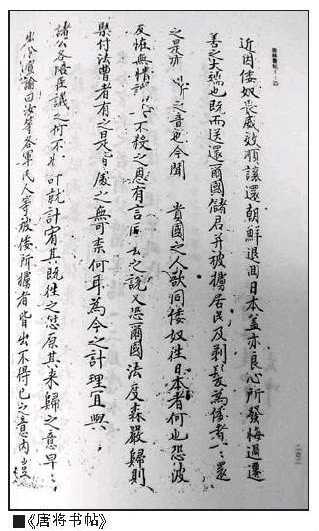 近因倭奴畏威效順讓還朝鮮退回日本蓋亦良心所發悔過遷
善之大端也既而送還爾國儲君并被擄居民及剃髮爲倭者一一還
之是亦之音也今聞 貴國之人欲同倭奴往日本者何也恐彼
反怪無情不殺之恩有言去之說又恐爾國法度森嚴歸則
付法曹者有之是皆處之無可奈何耳為今之計理宜與
諸公各陪臣議之何不就計宥其既往之愆原其來歸之意早
出令諭曰汝等各軍民人等被倭所擄者皆出不得已之意內豈
■《唐将书帖》